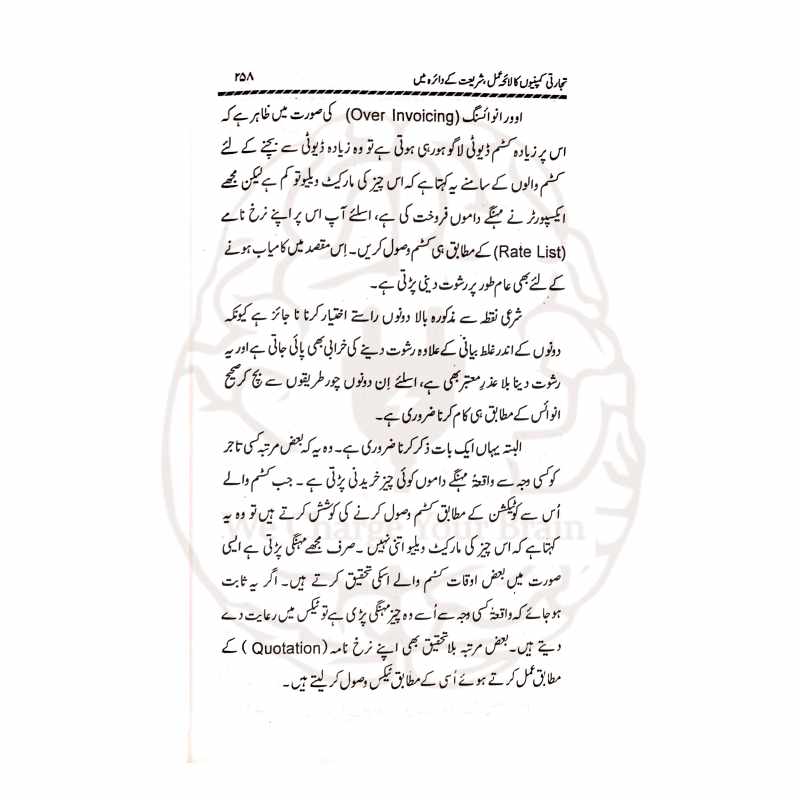 تجارتی کمپنیوں کا لائحہ عمل، شریعت کے دائرہ میں ۲۵۸
اوور انوائسنگ (Over Invoicing) کی صورت میں ظاہر ہے کہ
اس پر زیادہ کسٹم ڈیوٹی لاگو ہو رہی ہوتی ہے تو وہ زیادہ ڈیوٹی سے بچنے کے لئے
کسٹم والوں کے سامنے یہ کہتا ہے کہ اس چیز کی مارکیٹ ویلیو تو کم ہے لیکن مجھے
ایکسپورٹر نے مہنگے داموں فروخت کی ہے، اسلئے آپ اس پر اپنے نرخ نامے
(Rate List) کے مطابق ہی کسٹم وصول کریں۔ اِس مقصد میں کامیاب ہونے
کے لئے بھی عام طور پر رشوت دینی پڑتی ہے۔
شرعی نقطہ سے مذکورہ بالا دونوں راستے اختیار کرنا نا جائز ہے کیونکہ
دونوں کے اندر غلط بیانی کے علاوہ رشوت دینے کی خرابی بھی پائی جاتی ہے اور یہ
رشوت دینا بلا عذرِ معتبر بھی ہے، اسلئے اِن دونوں چور طریقوں سے بچ کر صحیح
انوائس کے مطابق ہی کام کرنا ضروری ہے۔
البتہ یہاں ایک بات ذکر کرنا ضروری ہے۔ وہ یہ کہ بعض مرتبہ کسی تاجر
کو کسی وجہ سے واقعۃً مہنگے داموں کوئی چیز خریدنی پڑتی ہے ۔ جب کسٹم والے
اُس سے کوٹیکشن کے مطابق کسٹم وصول کرنے کی کوشش کرتے ہیں تو وہ یہ
کہتا ہے کہ اس چیز کی مارکیٹ ویلیو اتنی نہیں ۔ صرف مجھے مہنگی پڑتی ہے ایسی
صورت میں بعض اوقات کسٹم والے اسکی تحقیق کرتے ہیں۔ اگر یہ ثابت
ہو جائے کہ واقعۃً کسی وجہ سے اُسے وہ چیز مہنگی پڑی ہے تو ٹیکس میں رعایت دے
دیتے ہیں۔ بعض مرتبہ بلا تحقیق بھی اپنے نرخ نامہ (Quotation ) کے
مطابق عمل کرتے ہوئے اُسی کے مطابق ٹیکس وصول کر لیتے ہیں۔
We Charge Your Brain